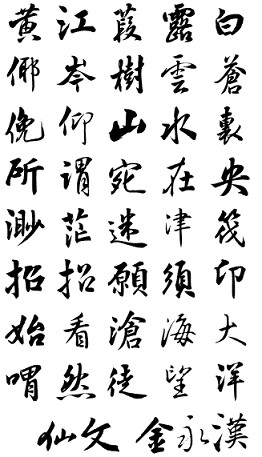 黃江葭露白
倻岑樹雲蒼
俛仰山水裏
所謂宛在央
渺茫迷津筏
招招願須印
始看滄海大
喟然徒望洋
仙文 金永漢